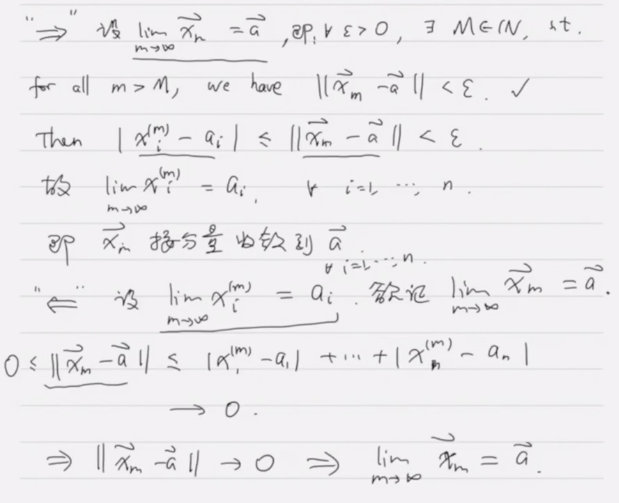 "⇒" 设 lim_{m→∞} \vec{x}_m = \vec{a}, 即, ∀ ε>0, ∃ M∈ℕ, s.t.
for all m > M, we have ||\vec{x}_m - \vec{a}|| < ε. ✓
Then |x_i^{(m)} - a_i| ≤ ||\vec{x}_m - \vec{a}|| < ε.
故 lim_{m→∞} x_i^{(m)} = a_i, ∀ i=1, ..., n.
即 \vec{x}_m 按分量收敛到 \vec{a}
"⇐" 设 lim_{m→∞} x_i^{(m)} = a_i ∀ i=1, ..., n. 欲证 lim_{m→∞} \vec{x}_m = \vec{a}.
0 ≤ ||\vec{x}_m - \vec{a}|| ≤ |x_1^{(m)} - a_1| + ... + |x_n^{(m)} - a_n|
→ 0.
⇒ ||\vec{x}_m - \vec{a}|| → 0 ⇒ lim_{m→∞} \vec{x}_m = \vec{a}.